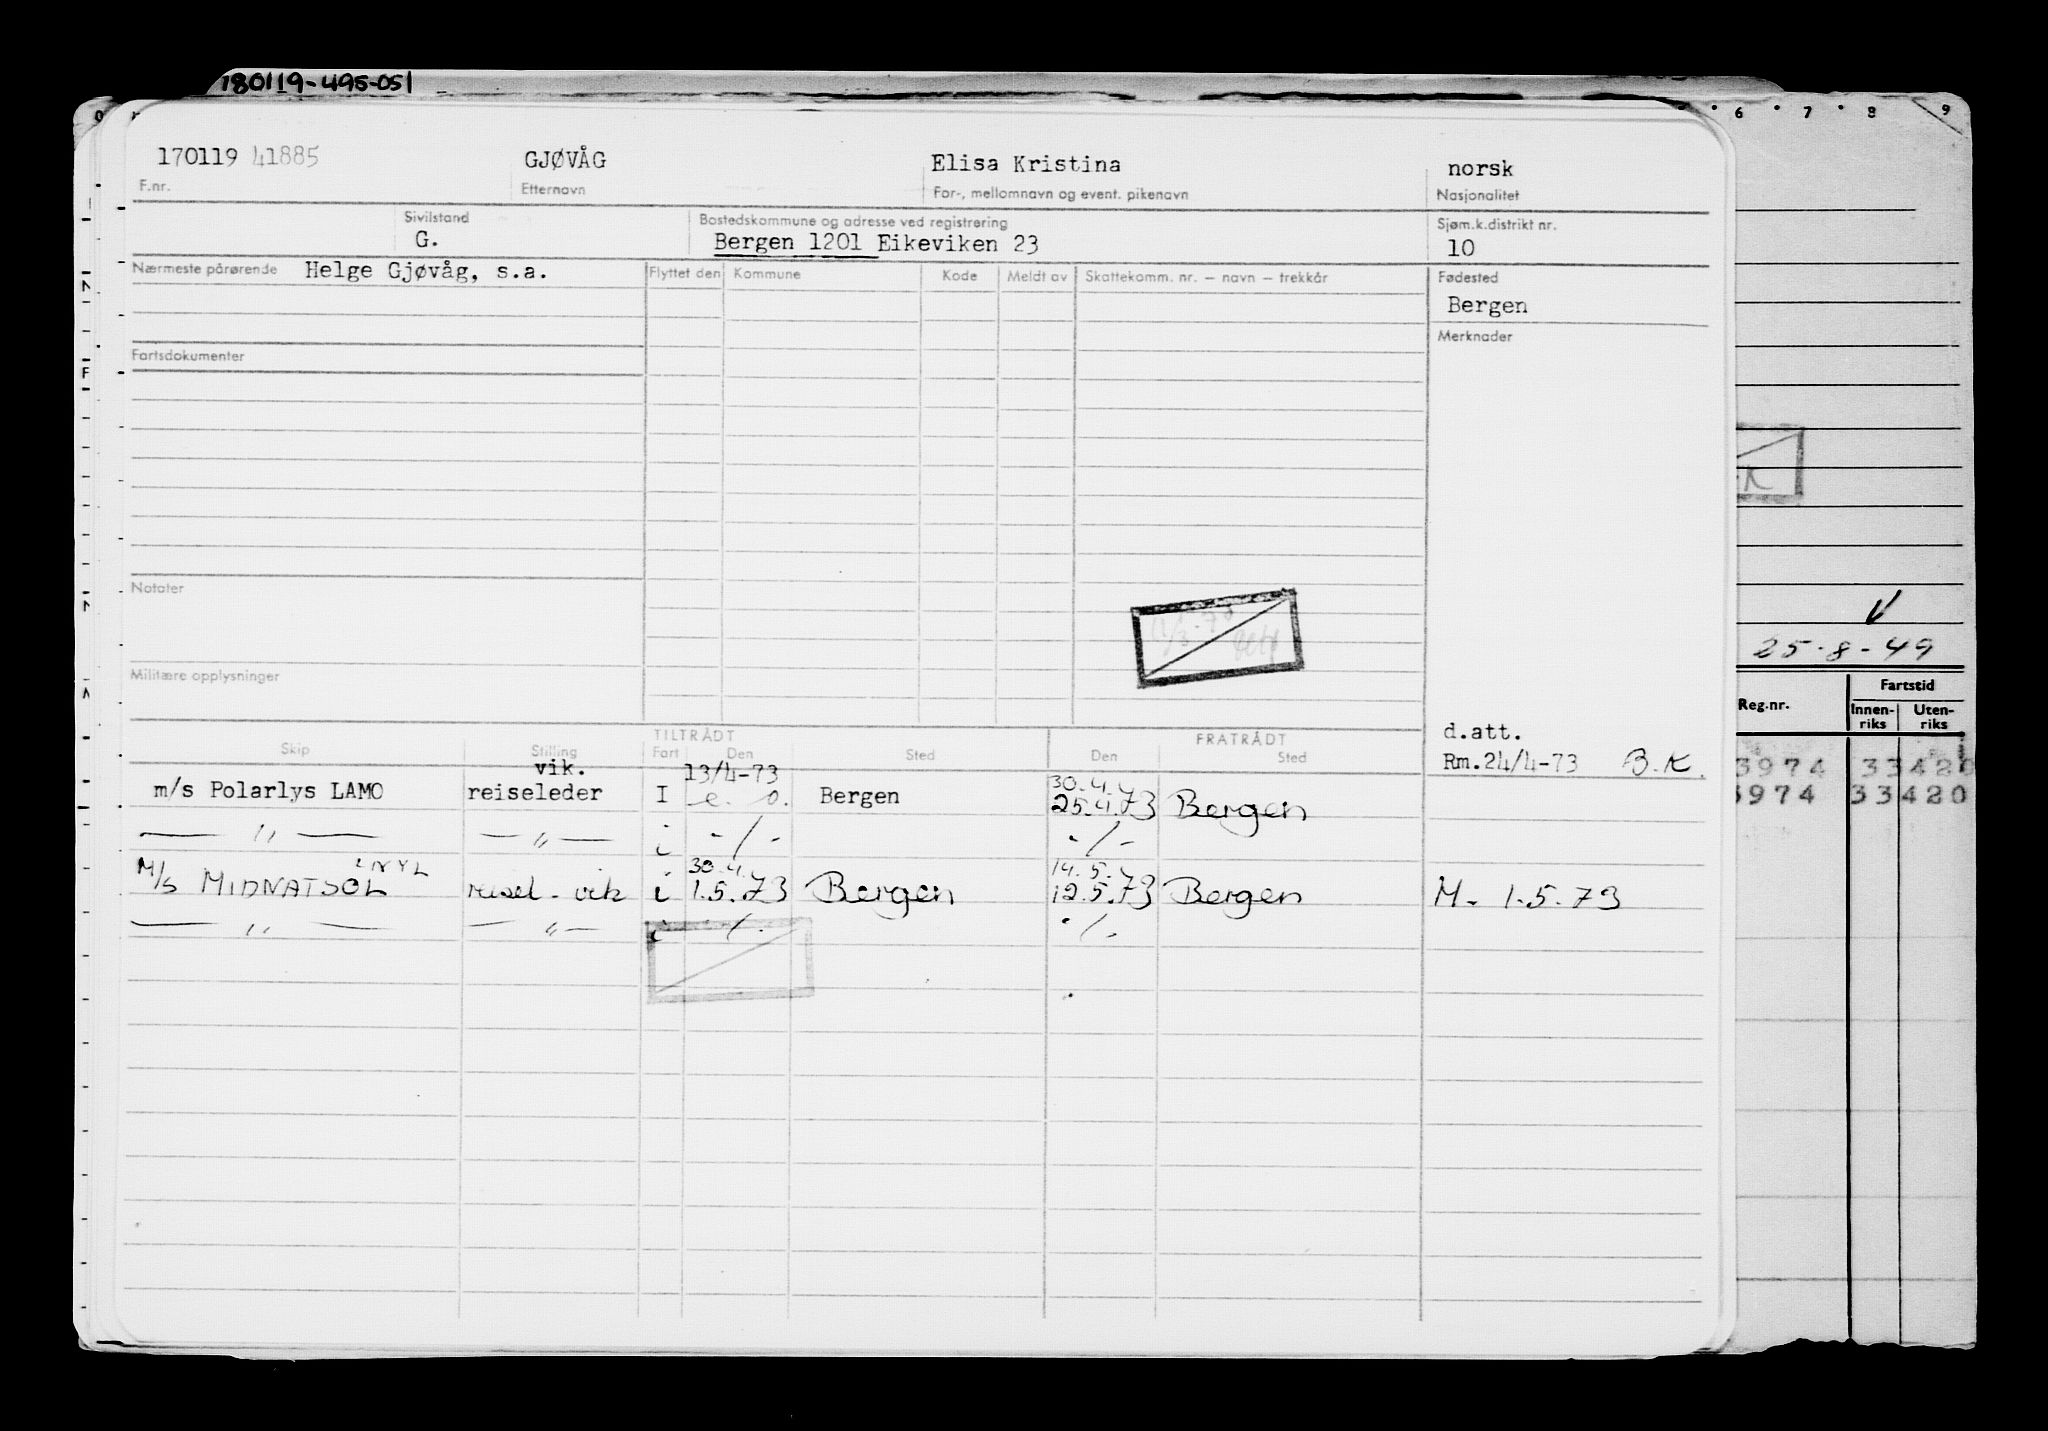 180119-495-051
6 7 8 9
170119 41885 GJØVÅG Elisa Kristina norsk
F.nr. Etternavn For-, mellomnavn og event. pikenavn Nasjonalitet
Sivilstand Bostedskommune og adresse ved registrering Sjøm.k.distrikt nr.
G. Bergen 1201 Eikeviken 23 10
Nærmeste pårørende Helge Gjøvåg, s.a. Flyttet den Kommune Kode Meldt av Skattekomm. nr. – navn – trekkår Fødested
Bergen
Merknader
Fartsdokumenter
Notater
25-8-49
Militære opplysninger
Reg.nr. Fartstid
Innen-riks Uten-riks
TILTRÅDT FRATRÅDT d.att.
Skip Stilling Fart Den Sted Den Sted Rm.24/4-73 B.K.
vik. 13/4-73 30.4.73
m/s Polarlys LAMO reiseleder I e. o. Bergen 25.4.73 Bergen
3974 33420
3974 33420
— " — — " — i -/- -/-
LNYL 30.4. 14.5.
M/s MIDNATSOL reisel - vik i 1.5.73 Bergen 12.5.73 Bergen M. 1.5.73
— " — — " — i -/- -/-